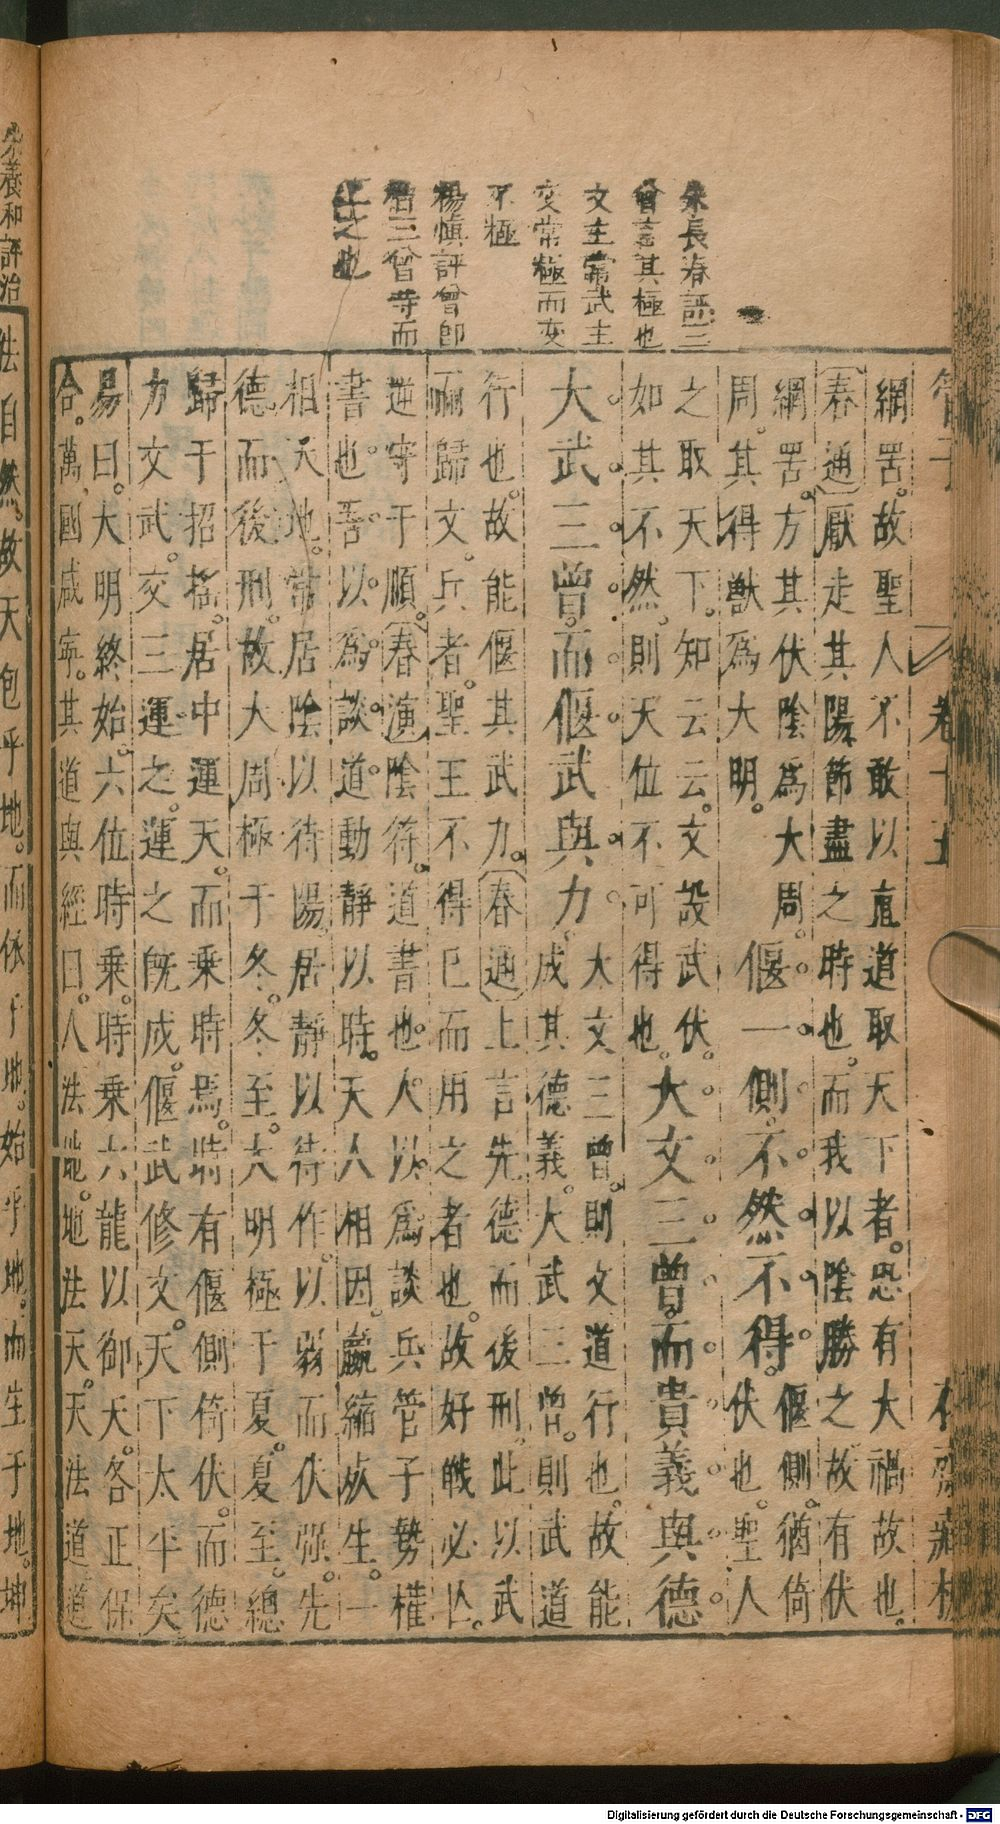 朱長春評三
曾言其極也
文主常武主
變常極而友
不極
楊慎評曾即
層三曾等而
上之也
管子
卷十五
網罟。故聖人不敢以直道取天下者。恐有大禍故也。
〔春通〕厭走其陽節盡之時也。而我以陰勝之故有伏
網罟。方其伏陰爲大周
周。其得獸爲大明。
偃一側。不然不得。
偃側。猶倚
伏也。聖人
之取天下。知云云。文設武伏。
如其不然。則天位不可得也。
大文三曾。而貴義與德
大武三曾。而偃武與力。
大文三曾。則文道行也。故能
成其德義。大武三曾。則武道
行也。故能偃其武力。〔春通〕上言先德而後刑。此以武
而歸文。兵者。聖王不得已而用之者也。故好戰必亡。
逆守于順。〔春演〕陰符。道書也。人以爲談兵管子勢權
書也。吾以爲談道。動靜以時。天人相因。嬴縮成生。一
相天地。常居陰以待陽。居靜以待作。以弱而伏强。先
德而後刑。故大周極于冬。冬至。大明極于夏。夏至。總
歸于招搖。居中運天。而乘時焉。時有偃側倚伏。而德
力文武。交三運之。運之既成。偃武修文。天下太平矣
易曰。大明終始。六位時乘。時乘六龍以御天。各正保
合。萬國咸寧。其道與經曰。人法地。地法天。天法道道
朱養和評治
法自然。故天包乎地。而依于地。始乎地。而生于地。坤
Digitalisierung gefördert durch die Deutsche Forschungsgemeinschaft - DFG